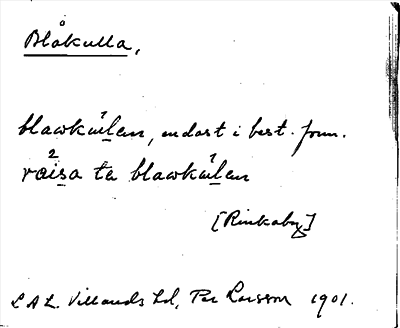 Blåkulla,
blawkúlen, endast i best. form.
ráisa ta blawkúlen
[Rinkaby]
LAL. Villands hd, Per Larsson 1901.